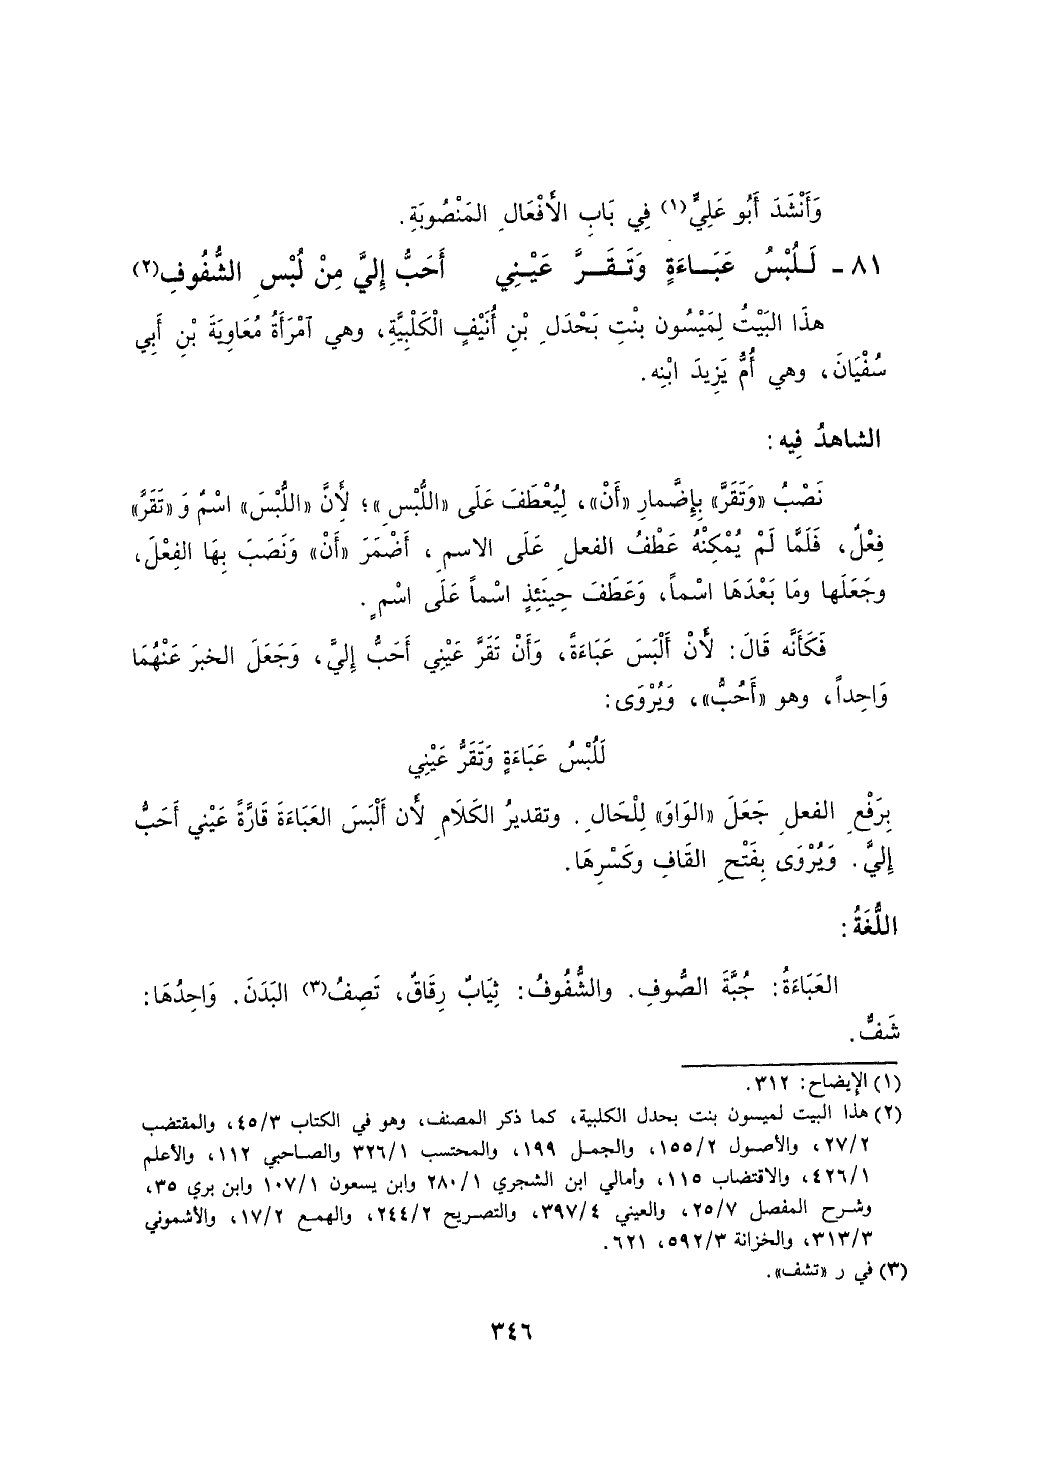 وَأَنْشَدَ أَبُو عَلِيٍّ(١) فِي بَابِ الأَفْعَالِ المَنْصُوبَةِ.
٨١ - لَلُبْسُ عَبَاءَةٍ وَتَقَرَّ عَيْنِي أَحَبُّ إِليَّ مِنْ لُبْسِ الشُّفُوفِ(٢)
هذَا البَيْتُ لِمَيْسُون بنْتِ بَحْدَلِ بْنِ أُنَيْفٍ الْكَلْبِيَّةِ، وهي آمْرَأَةُ مُعَاوِيَةَ بْنِ أَبِي
سُفْيَانَ، وهي أُمُّ يَزِيدَ ابْنِه.
الشاهدُ فِيه:
نَصْبُ «وَتَقَرَّ» بِإِضْمارِ «أَنْ»، لِيُعْطَفَ عَلَى «اللُّبْسِ»؛ لأِنَّ «اللُّبْسَ» اسْمٌ وَ«تَقَرَّ»
فِعْلٌ، فَلَمَّا لَمْ يُمْكِنْهُ عَطْفُ الفعلِ عَلَى الاسمِ، أَضْمَرَ «أَنْ» وَنَصَبَ بِهَا الفِعْلَ،
وجَعَلَها ومَا بَعْدَهَا اسْماً، وَعَطَفَ حِينَئِذٍ اسْماً عَلَى اسْمٍ.
فَكَأَنَّه قَالَ: لَأنْ أَلْبَسَ عَبَاءَةً، وَأَنْ تَقَرَّ عَيْنِي أَحَبُّ إِليَّ، وَجَعَلَ الخبرَ عَنْهُمَا
وَاحِداً، وهو «أَحُبُّ»، وَيُرْوَى:
لَلُبْسُ عَبَاءَةٍ وَتَقَرُّ عَيْنِي
بِرَفْعِ الفعلِ جَعَلَ «الوَاوَ» لِلْحَالِ. وتقديرُ الكَلَامِ لَأن أَلْبَسَ العَبَاءَةَ قَارَّةً عَيْني أَحَبُّ
إِليَّ. وَيُرْوَى بِفَتْحِ القَافِ وكَسْرِهَا.
اللُّغَةُ:
العَبَاءَةُ: جُبَّةَ الصُّوفِ. والشُّفُوفُ: ثِيَابٌ رِقَاقٌ، تَصِفُ(٣) البَدَنَ. وَاحِدُهَا:
شَفٌّ.
(١) الإيضاح: ٣١٢.
(٢) هذا البيت لميسون بنت بحدل الكلبية، كما ذكر المصنف، وهو في الكتاب ٤٥/٣، والمقتضب
٢٧/٢، والأصول ١٥٥/٢، والجمل ١٩٩، والمحتسب ٣٢٦/١ والصاحبي ١١٢، والأعلم
٤٢٦/١، والاقتضاب ١١٥، وأمالي ابن الشجري ٢٨٠/١ وابن يسعون ١٠٧/١ وابن بري ٣٥،
وشرح المفصل ٢٥/٧، والعيني ٣٩٧/٤، والتصريح ٢٤٤/٢، والهمع ١٧/٢، والأشموني
٣١٣/٣، والخزانة ٥٩٢/٣، ٦٢١.
(٣) في ر «تشف».
٣٤٦